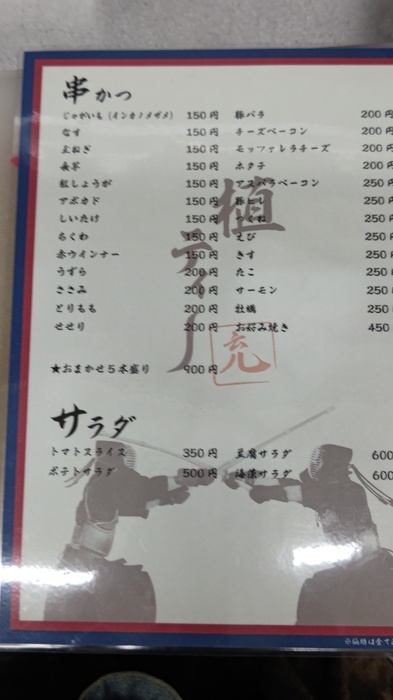 串かつ
じゃがいも(インカノメザメ) 150円 豚バラ 200円
なす 150円 チーズベーコン 200円
玉ねぎ 150円 モッツァレラチーズ 200円
長芋 150円 ホタテ 200円
紅しょうが 150円 アスパラベーコン 250円
アボカド 150円 豚ヒレ 250円
しいたけ 150円 つくね 250円
ちくわ 150円 えび 250円
赤ウインナー 150円 きす 250円
うずら 200円 たこ 250
ささみ 200円 サーモン 250
とりもも 200円 牡蠣 250
せせり 200円 お好み焼き 450
★おまかせ5本盛り 900円
植ティー
充
サラダ
トマトスライス 350円 豆腐サラダ 600
ポテトサラダ 500円 海藻サラダ 600
※価格は全て